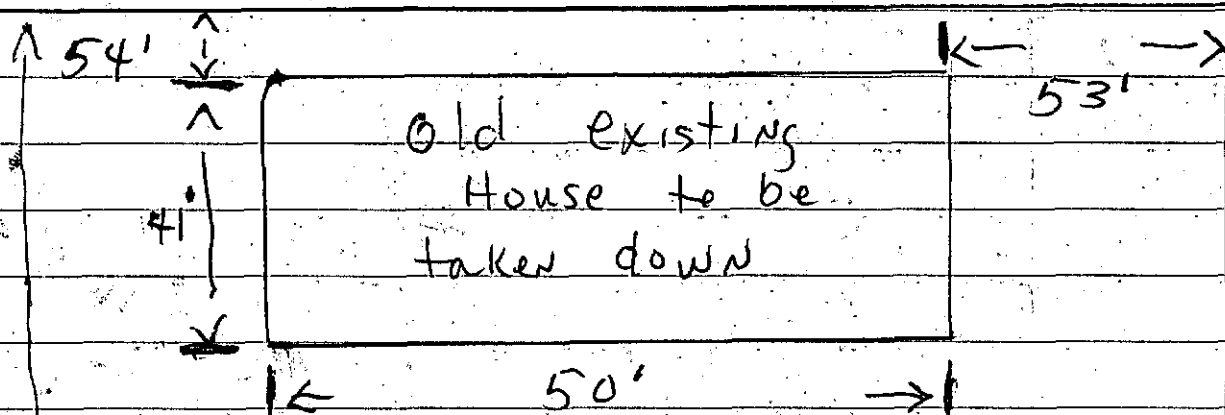 54'
53'
Old existing
House to be
41'
taken down
50'